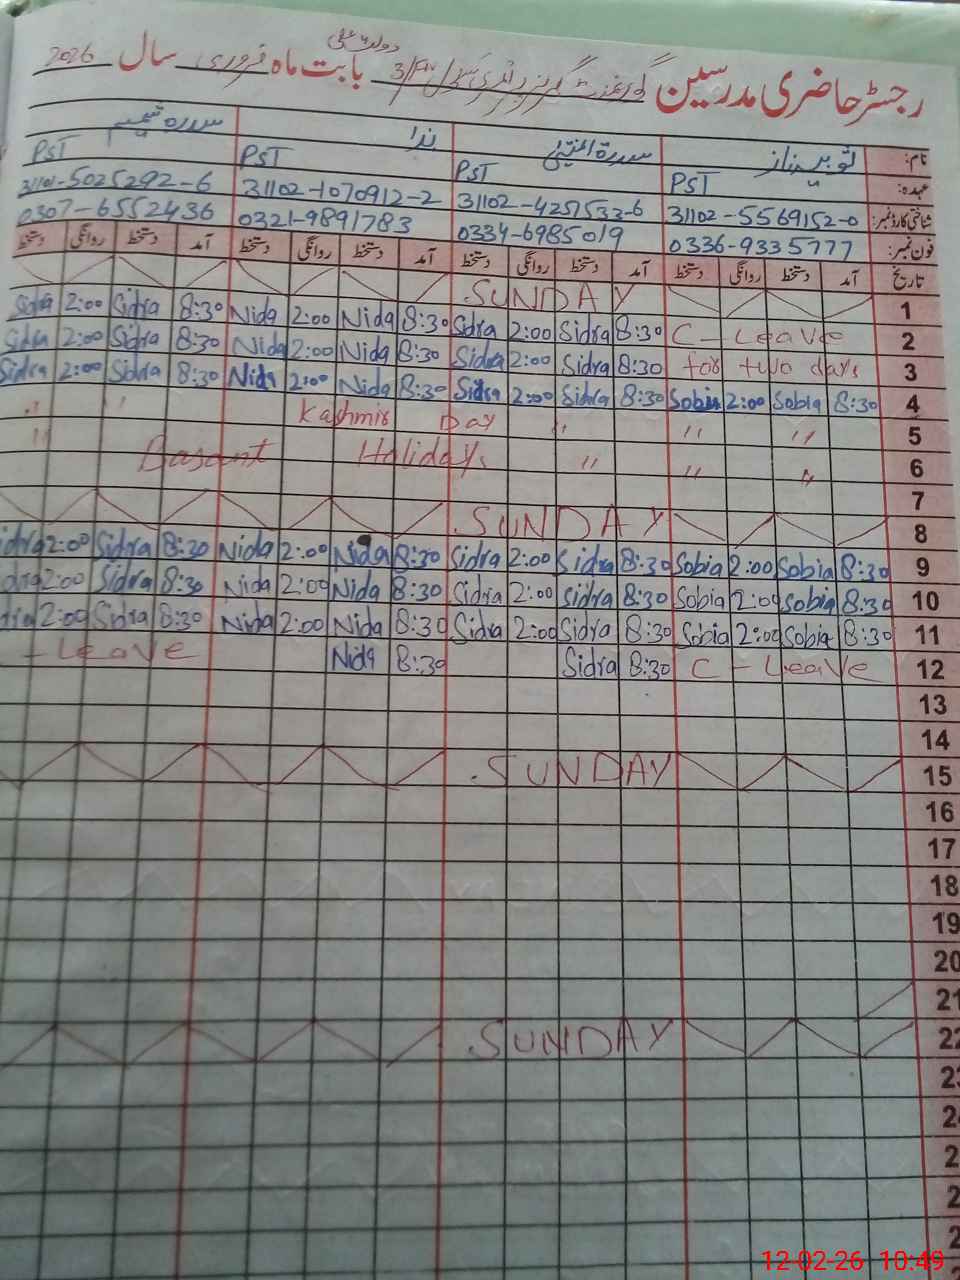 رجسٹر حاضری مدرسین گورنمنٹ گرلز پرائمری سکول 3/FW دولت علی بابت ماہ فروری سال 2026
نام: ثوبیہ ناز سدرۃ المنتہیٰ ندا سدرہ تبسم
عہدہ: PST PST PST PST
شناختی کارڈ نمبر: 31102-5569152-0 31102-4251533-6 31102-1070912-2 31101-5025292-6
فون نمبر: 0336-9335777 0334-6985019 0321-9891783 0307-6552436
تاریخ آمد دستخط روانگی دستخط آمد دستخط روانگی دستخط آمد دستخط روانگی دستخط آمد دستخط روانگی دستخط
SUNDAY 1
Sidra 2:00 Sidra 8:30 Nida 2:00 Nida 8:30 Sidra 2:00 Sidra 8:30 C - Leave 2
Sidra 2:00 Sidra 8:30 Nida 2:00 Nida 8:30 Sidra 2:00 Sidra 8:30 for two days 3
Sidra 2:00 Sidra 8:30 Nida 2:00 Nida 8:30 Sidra 2:00 Sidra 8:30 Sobia 2:00 Sobia 8:30 4
" " Kashmir Day " " " 5
" Basant Holidays " " " 6
7
SUNDAY 8
idra 2:00 Sidra 8:30 Nida 2:00 Nida 8:30 Sidra 2:00 Sidra 8:30 Sobia 2:00 Sobia 8:30 9
dra 2:00 Sidra 8:30 Nida 2:00 Nida 8:30 Sidra 2:00 Sidra 8:30 Sobia 2:00 Sobia 8:30 10
dra 2:00 Sidra 8:30 Nida 2:00 Nida 8:30 Sidra 2:00 Sidra 8:30 Sobia 2:00 Sobia 8:30 11
- Leave Nida 8:30 Sidra 8:30 C - Leave 12
13
14
SUNDAY 15
16
17
18
19
20
21
SUNDAY 22
23
24
2
2
2
12-02-26 10:49